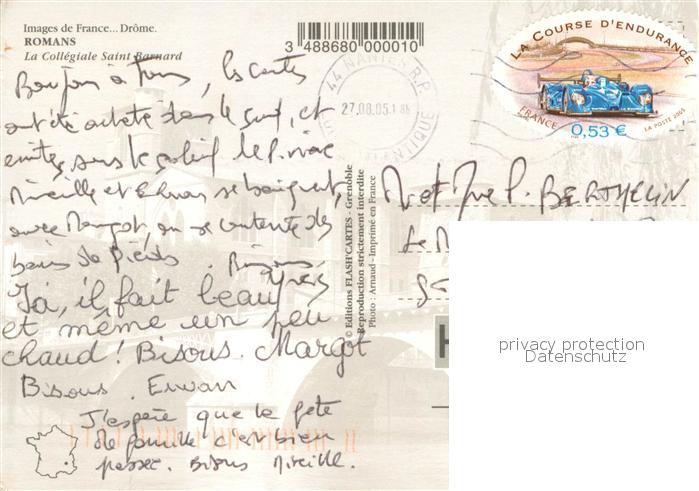 Images de France... Drôme.
ROMANS
La Collégiale Saint Barnard
3 488680 000010
44 NANTES R.P.
27.08.05
LOIRE ATLANTIQUE
LA COURSE D'ENDURANCE
FRANCE
0,53 €
LA POSTE 2005
Bonjour à tous, les cartes
ont été acheté dans le sud, et
écrites sous le soleil
Mireille et Erwan se baignent,
avec Margot, on se contente de
bains de pieds. Bisous.
Yves
Ici, il fait beau
et même un peu
chaud! Bisous. Margot
Bisous. Erwan
J'espère que la fête
de famille c'est bien
passée. Bisous Mireille.
© Editions FLASH'CARTES - Grenoble
Reproduction strictement interdite
Photo : Arnaud - Imprimé en France
M et Mme P. BERTHELIN
privacy protection
Datenschutz